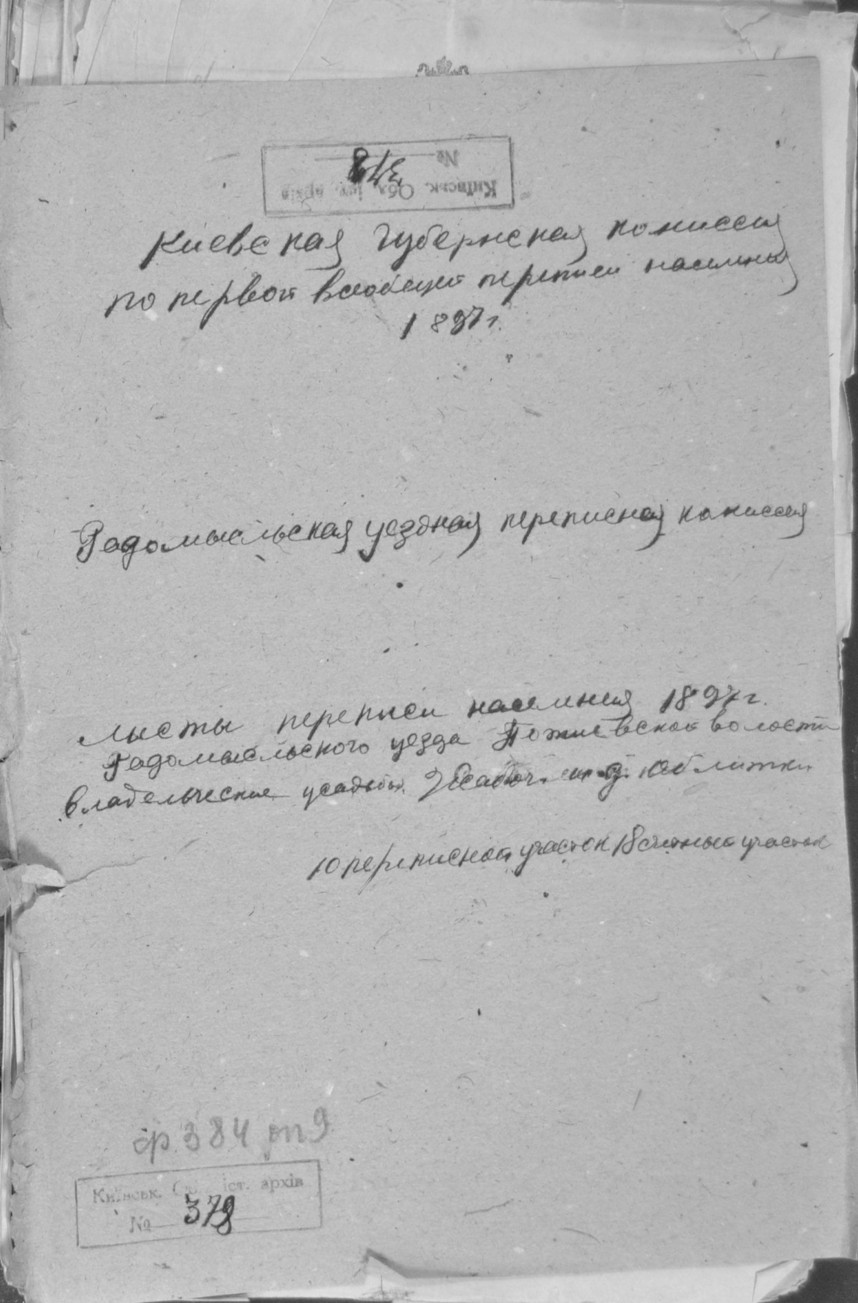 Київськ. Обл. іст. архів
№ 378
Киевская губернская комиссия
по первой всеобщей переписи населения
1897 г.
Радомысльская уездная переписная комиссия
Листы переписи населения 1897 г.
Радомысльского уезда Потиевской волости
владельческие усадьбы
10 переписной участок 18 счетный участок
ф 384 оп 9
Київськ. Обл. іст. архів
№ 378